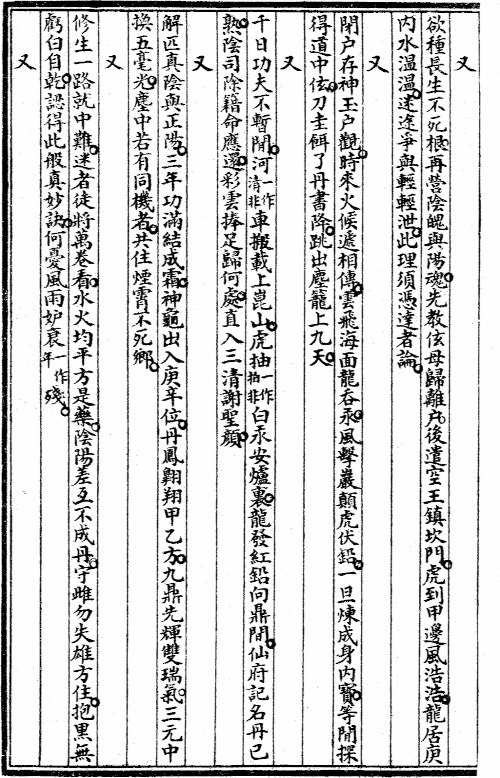 又
欲種長生不死根再營陰魄與陽魂先教侅母歸離戶後遣空王鎮坎門虎到甲邊風浩浩龍居庚
內水溫溫迷途爭與輕輕泄此理須憑達者論
又
閉戶存神玉戶觀時來火候遞相傳雲飛海面龍吞汞風擊巖顛虎伏鉛一旦煉成身內寶等閒探
得道中侅刀圭餌了丹書降跳出塵籠上九天
又
千日功夫不暫閒河一作清非車搬載上崑山虎抽一作拍非白汞安爐裏龍發紅鉛向鼎閒仙府記名丹已
熟陰司除籍命應還彩雲捧足歸何處直入三清謝聖顏
又
解匹真陰與正陽三年功滿結成霜神龜出入庚辛位丹鳳翱翔甲乙方九鼎先輝雙瑞氣三元中
換五毫光塵中若有同機者共住煙霄不死鄉
又
修生一路就中難迷者徒將萬卷看水火均平方是藥陰陽差互不成丹守雌勿失雄方住抱黑無
虧白自乾認得此般真妙訣何憂風雨妒衰一作年殘